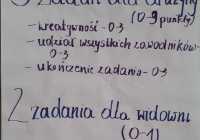 3 zadań dla drużyny
(0-9 punkty)
- kreatywność - 0-3
- udział wszystkich zawodników -
0-3
- ukończenie zadania - 0-3
2 zadania dla widowni
(0-1)